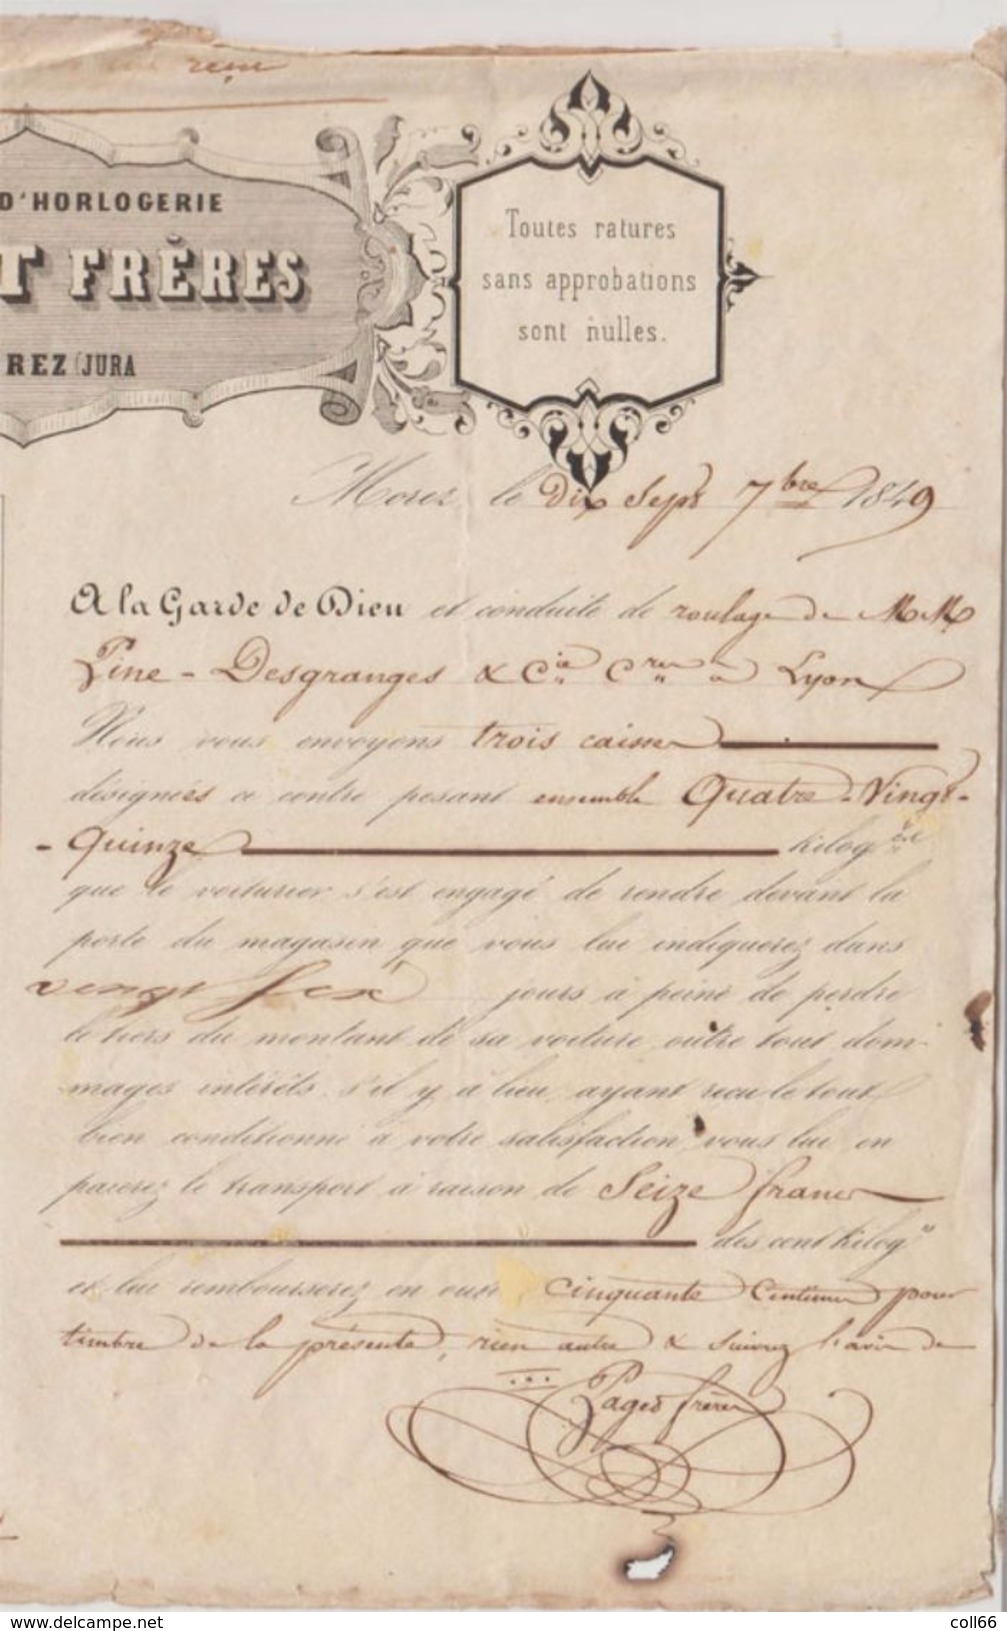 reçu
D'HORLOGERIE
T FRÈRES
REZ (JURA
Toutes ratures
sans approbations
sont nulles.
Morez le dix Sept 7bre 1849
A la Garde de Dieu et conduite de roulage de MM
Pine - Desgranges & Cie Cres à Lyon
Nous vous envoyons trois caisses
désignées ci contre pesant ensemble Quatre-Vingt-
- Quinze kilog
que le voiturier s'est engagé de rendre devant la
porte du magasin que vous lui indiquerez dans
vingt six jours à peine de perdre
le tiers du montant de sa voiture, outre tout dom-
mages intérêts s'il y a lieu, ayant reçu le tout
bien conditionné à votre satisfaction, vous lui en
paierez le transport à raison de Seize francs
des cent kilog
et lui rembourserez en outre cinquante Centimes pour
timbre de la présente, rien autre & suivez l'avis de
Paget frères
www.delcampe.net
coll66